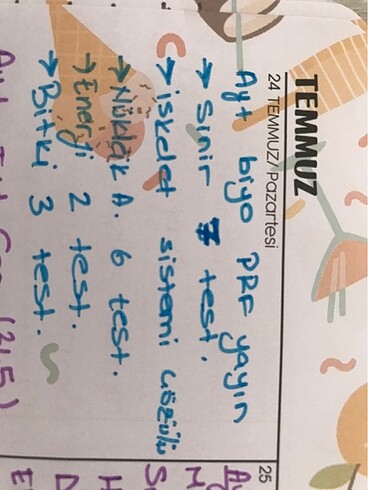 TEMMUZ
24 TEMMUZ/ Pazartesi
Ayt biyo PRF yayın
→ Sinir 7 test.
→ iskelet sistemi çözülü
→ Nükleik A. 6 test.
→ Enerji 2 test.
→ Bitki 3 test.
25